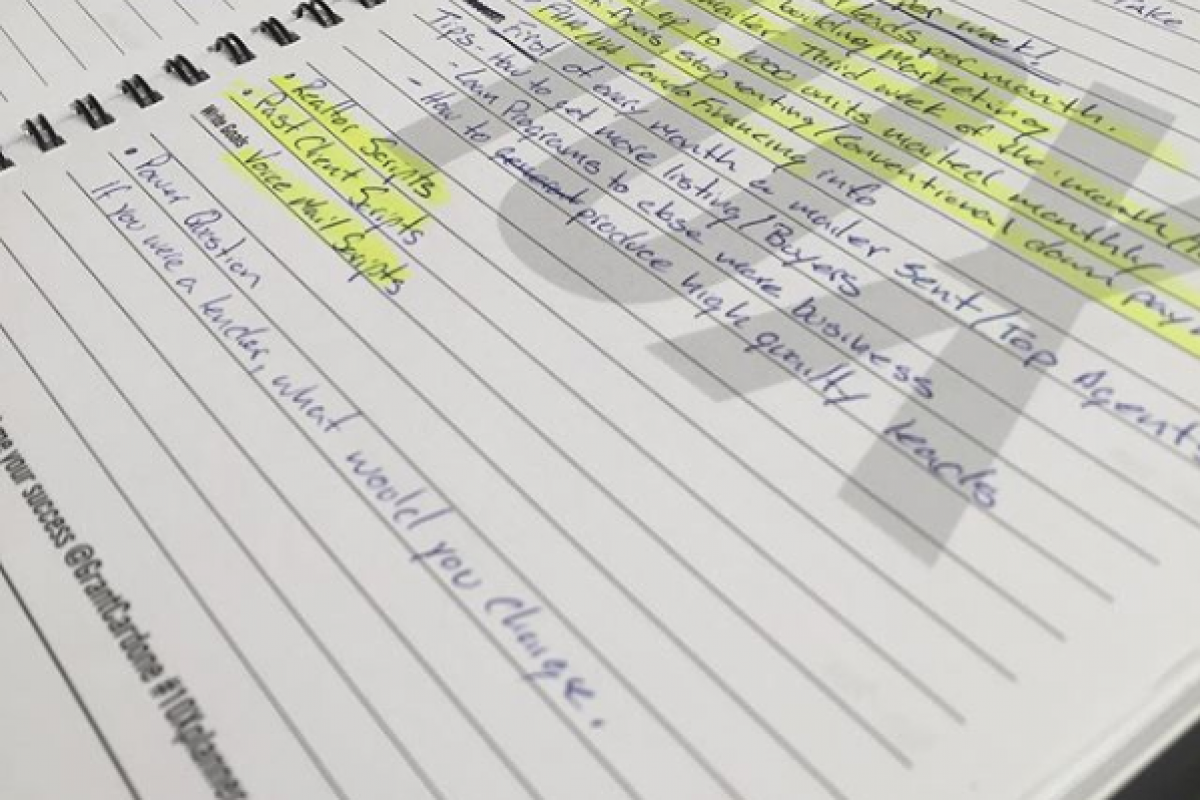 Take
per week!
leads per month.
building marketing
mailer Third week of the month/
up to 1000 units mailed monthly
stop renting/Conventional down pay
FHA/VA Condo Financing into
First of every month a mailer sent/Top Agents
Tips - How to get more listing/Buyers
- Loan Programs to close more business
- How to produce high quality leads
• Realtor Scripts
• Past Client Scripts
Write Goals Voice Mail Scripts
• Power Question
If you were a lender, what would you change.
me your success @GrantCardone #10Xplanner